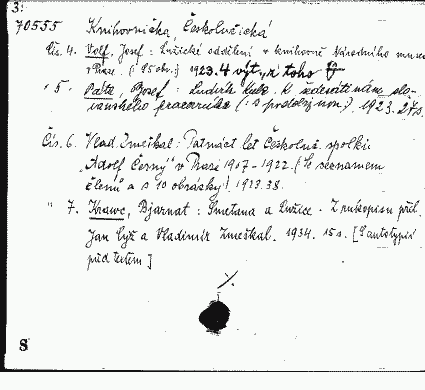 3:
70555 Knihovnička, Českolužická
Čís. 4. Volf, Josef: Lužické oddělení v knihovně Národního musea
v Praze. (: 95 obr.) 1923. 4 výt. z toho
" 5. Páta, Josef: Ludvík Kuba. K šedesátinám slo-
vanského pracovníka (: s podobiznou). 1923. 27 s.
Čís. 6. Vlad. Zmeškal: Patnáct let Českoluž. spolku
"Adolf Černý" v Praze 1907-1922. (Se seznamem
členů a s 10 obrázky) 1923. 38.
" 7. Krawc, Bjarnat: Smetana a Lužice. Z rukopisu přel.
Jan Cyž a Vladimír Zmeškal. 1934. 15 s. [S autotypií
před textem]
S